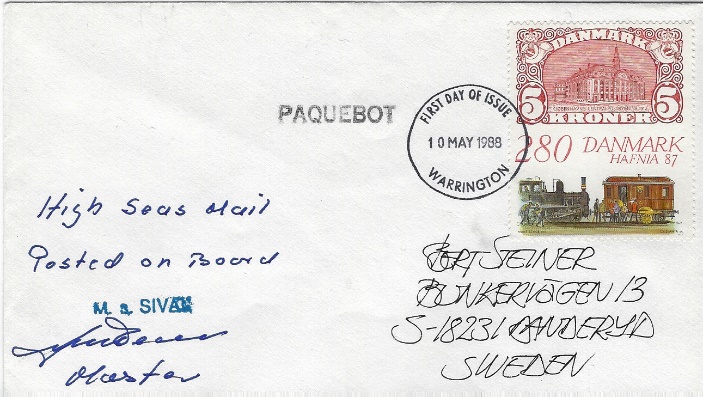 DANMARK
5 5
KØBENHAVNS CENTRALPOSTBYGNING
KRONER
280 DANMARK
HAFNIA 87
PAQUEBOT
FIRST DAY OF ISSUE
10 MAY 1988
WARRINGTON
High Seas Mail
Posted on Board
M. s. SIVAN
Master
BERT STEINER
BUNKERVÄGEN 13
S-18231 DANDERYD
SWEDEN